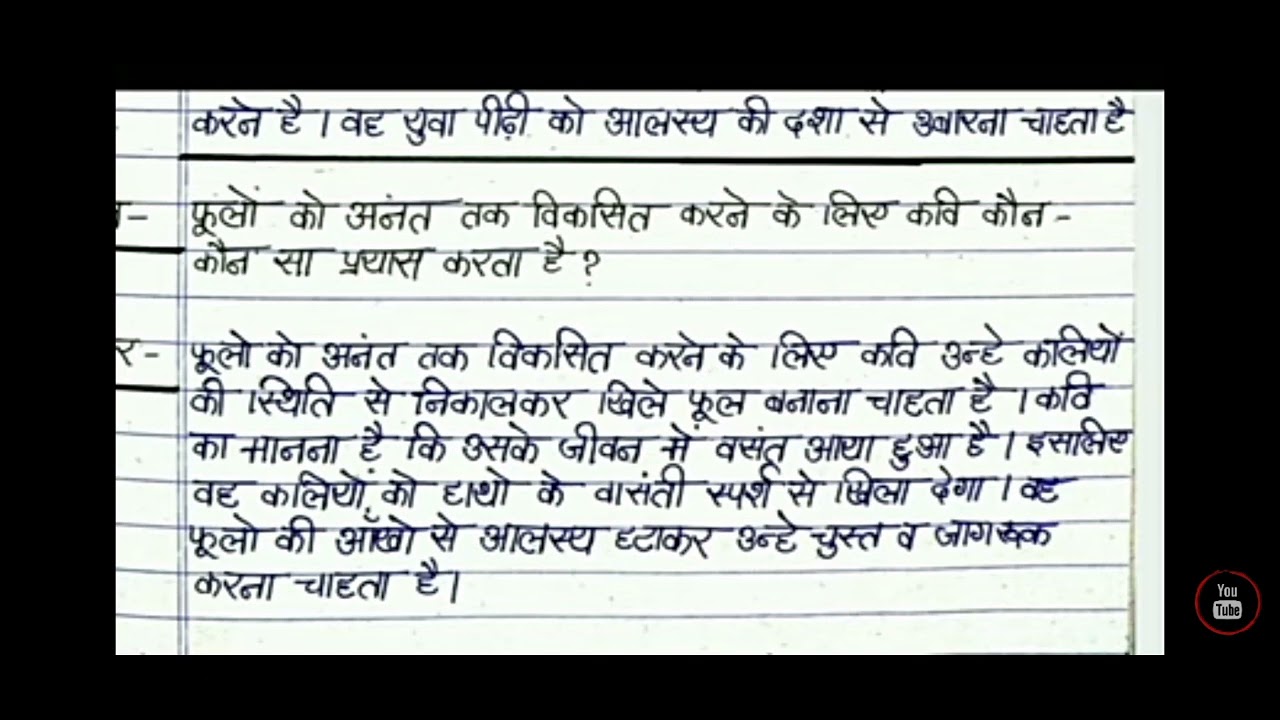 करने है । वह युवा पीढ़ी को आलस्य की दशा से उबारना चाहता है
फूलों को अनंत तक विकसित करने के लिए कवि कौन -
कौन सा प्रयास करता है ?
र- फूलो को अनंत तक विकसित करने के लिए कवि उन्हे कलियों
की स्थिति से निकालकर खिले फूल बनाना चाहता है । कवि
का मानना है कि उसके जीवन में वसंत आया हुआ है । इसलिए
वह कलियों को हाथो के वासंती स्पर्श से खिला देगा । वह
फूलो की आँखो से आलस्य हटाकर उन्हे चुस्त व जागरूक
करना चाहता है ।
You
Tube